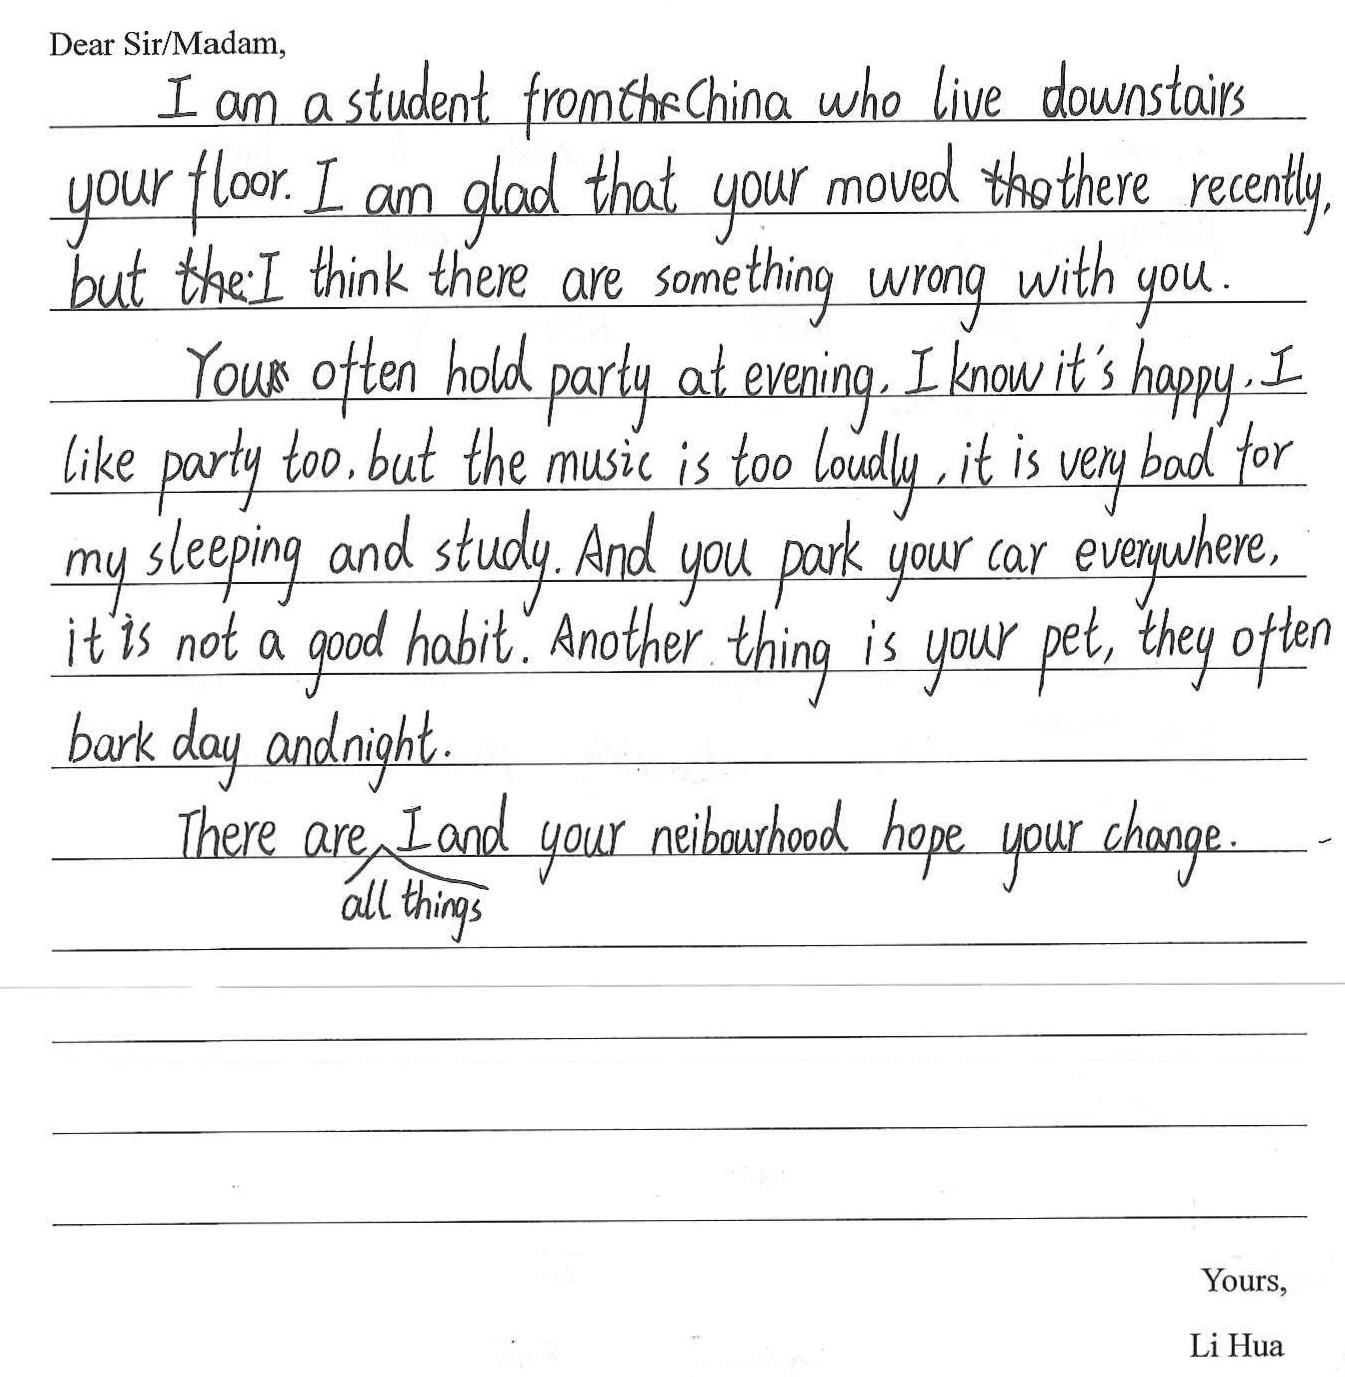 Dear Sir/Madam,
I am a student from China who live downstairs
your floor. I am glad that your moved there recently,
but I think there are something wrong with you.
You often hold party at evening. I know it's happy. I
like party too. but the music is too loudly, it is very bad for
my sleeping and study. And you park your car everywhere,
it is not a good habit. Another thing is your pet, they often
bark day and night.
There are all things I and your neibourhood hope your change.
Yours,
Li Hua